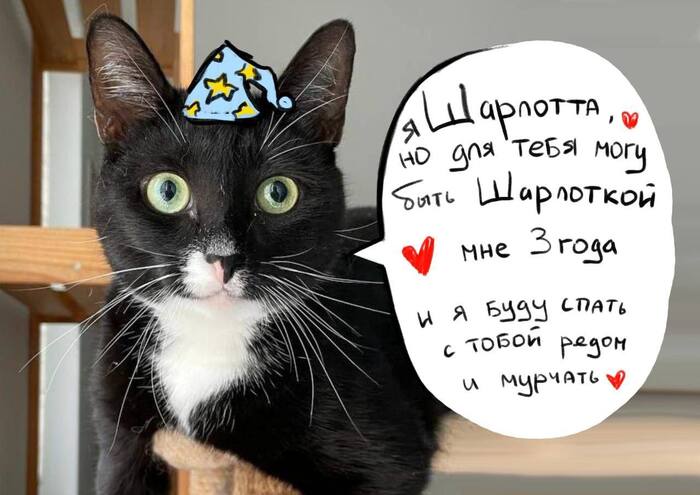 я Шарлотта,
но для тебя могу
быть Шарлоткой
мне 3 года
и я буду спать
с тобой редом
и мурчать